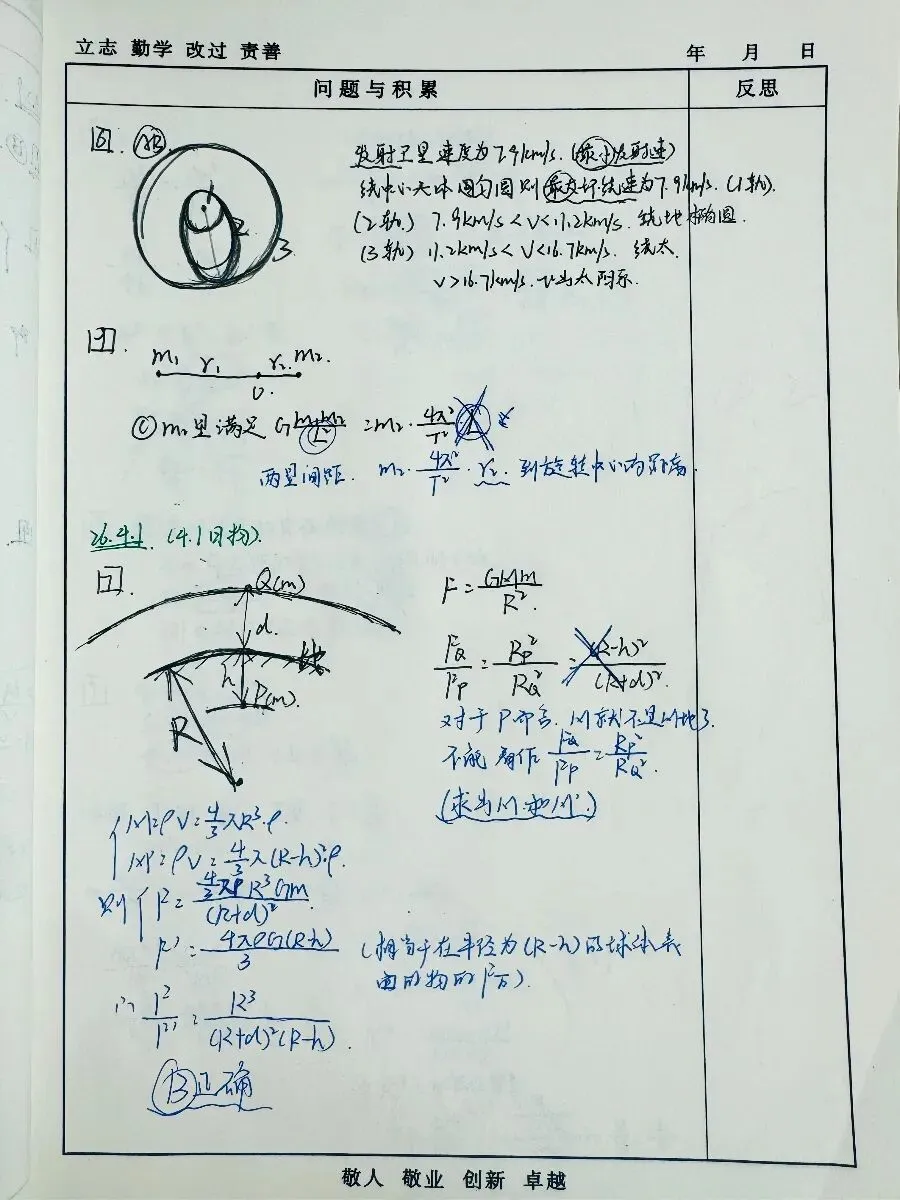 立志 勤学 改过 责善
年 月 日
问题与积累
反思
6. AB
2
3
发射卫星速度为7.9km/s. (最小发射速)
绕中心天体匀圆则最大环绕速为7.9km/s. (1轨).
(2轨.) 7.9km/s < V < 11.2km/s. 绕地椭圆.
(3轨) 11.2km/s < V < 16.7km/s. 绕太.
V > 16.7km/s. 飞出太阳系.
9.
m₁ r₁ r₂ m₂.
O.
C m₂里满足 G m₁m₂/L² = m₂·4π²/T² L
两星间距. m₂·4π²/T²·r₂. 到旋转中心的距离.
26.4.1 (4.1日物).
Q(m)
d.
地
h P(m).
R
F = GMm/R².
F_Q/F_P = R_P²/R_Q² = (R-h)²/(R+d)².
对于P而言. M就不是M地了.
不能用作 F_Q/F_P = R_P²/R_Q².
(求出M和M'.)
M=ρV=4/3πR³·ρ.
M'=ρV=4/3π(R-h)³·ρ.
则 F = 4/3πρR³Gm/(R+d)²
F' = 4πρG(R-h)/3 (相当于在半径为(R-h)的球体表
面的物的F万).
∴ F/F' = R³/(R+d)²(R-h).
B正确
敬人 敬业 创新 卓越